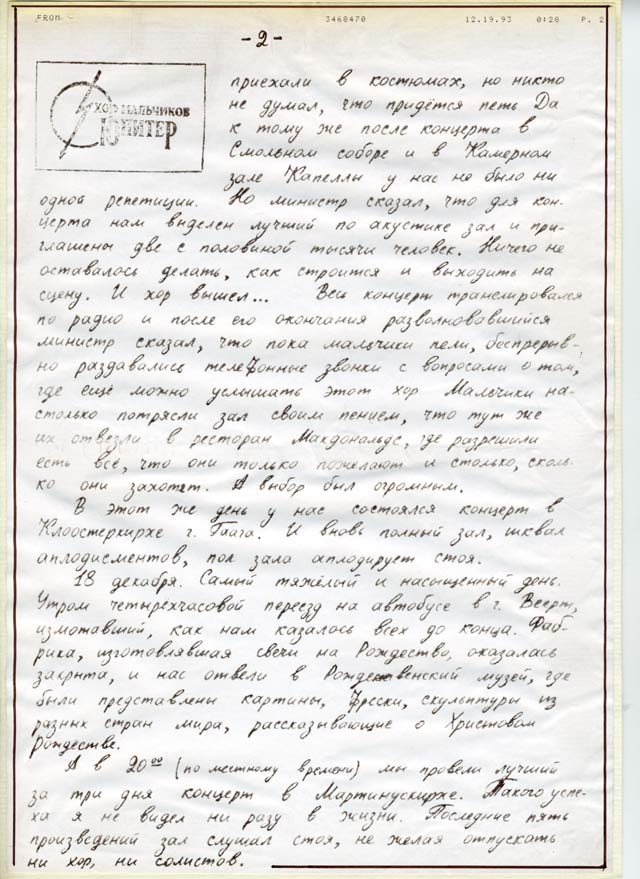 FROM - 3468470 12.19.93 0:28 P. 2
-2-
ХОР МАЛЬЧИКОВ
ЮПИТЕР
приехали в костюмах, но никто
не думал, что придётся петь Да
к тому же после концерта в
Смольном соборе и в Камерном
зале Капеллы у нас не было ни
одной репетиции. Но министр сказал, что для кон-
церта нам выделен лучший по акустике зал и при-
глашены две с половиной тысячи человек. Ничего не
оставалось делать, как строится и выходить на
сцену. И хор вышел... Весь концерт транслировался
по радио и после его окончания разволновавшийся
министр сказал, что пока мальчики пели, беспрерыв-
но раздавались телефонные звонки с вопросами о том,
где ещё можно услышать этот хор Мальчики на-
столько потрясли зал своим пением, что тут же
их отвезли в ресторан Макдональдс, где разрешили
есть всё, что они только пожелают и столько, сколь-
ко они захотят. А выбор был огромным.
В этот же день у нас состоялся концерт в
Клоостеркирхе г. Гаага. И вновь полный зал, шквал
аплодисментов, пол зала аплодирует стоя.
18 декабря. Самый тяжёлый и насыщенный день.
Утром четырёхчасовой переезд на автобусе в г. Веерт,
измотавший, как нам казалось всех до конца. Фаб-
рика, изготовлявшая свечи на Рождество, оказалась
закрыта, и нас отвели в Рождественский музей, где
были представлены картины, фрески, скульптуры из
разных стран мира, рассказывающие о Христовом
Рождестве.
А в 20⁰⁰ (по местному времени) мы провели лучший
за три дня концерт в Мартинускирхе. Такого успе-
ха я не видел ни разу в жизни. Последние пять
произведений зал слушал стоя, не желая отпускать
ни хор, ни солистов.